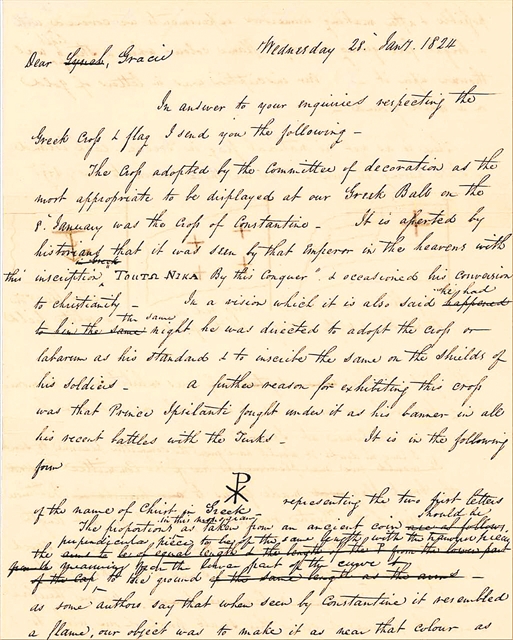 Wednesday 28. Jany. 1824
Dear Lynch, Gracie
In answer to your enquiries respecting the
Greek Cross & flag I send you the following –
The Cross adopted by the Committee of decoration as the
most appropriate to be displayed at our Greek Ball on the
8. January was the Cross of Constantine – It is asserted by
historians that it was seen by that Emperor in the heavens with
this Greek inscription "TOUTΩ NIKA By this Conquer" & occasioned his conversion
to christianity – In a vision which it is also said he had happened
to him the same the same night he was directed to adopt the cross or
labarum as his standard & to inscribe the same on the shields of
his soldiers – A further reason for exhibiting this cross
was that Prince Ipsilanti fought under it as his banner in all
his recent battles with the Turks – It is in the following
form
of the name of Christ in Greek representing the two first letters
The proportions in this as taken from an ancient coin are as follows. should be
perpendicular piece to be of the same length with the
the arms to be of equal length the length of the P from the lower part
measuring from the lower part of the curve
of the Cap to the ground of the same length as the arms –
as some authors say that when seen by Constantine it resembled
a flame, our object was to make it as near that colour as